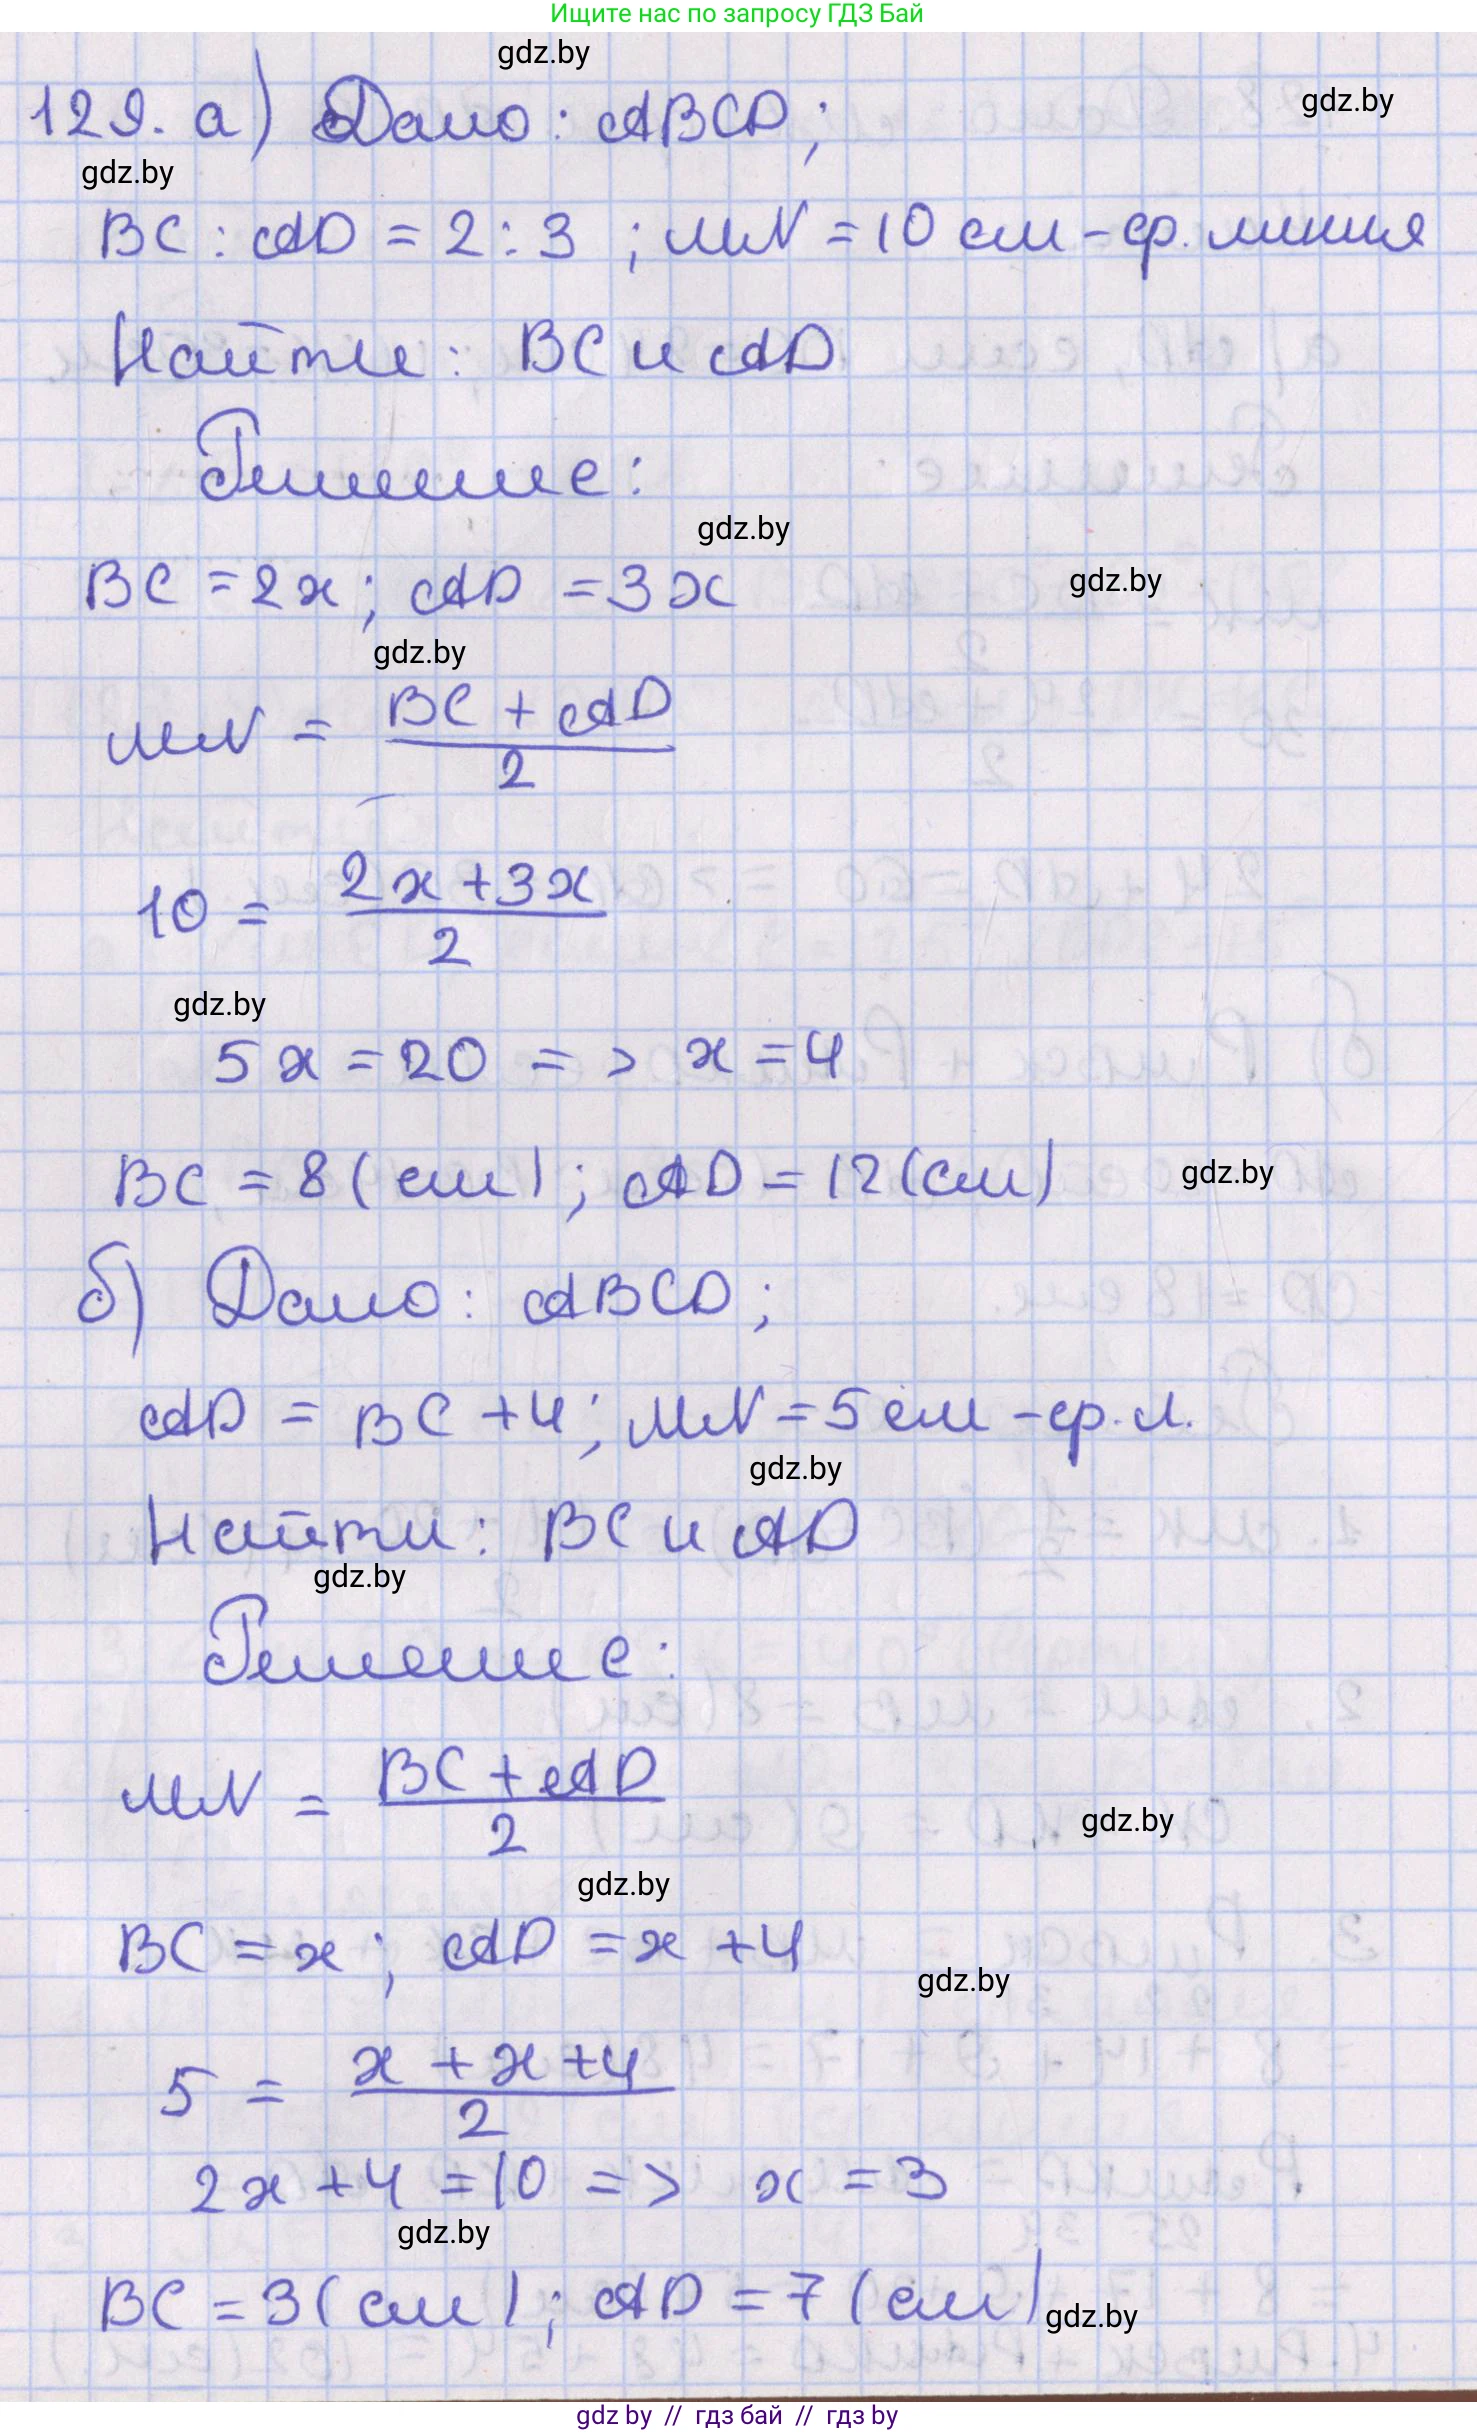 Ищите нас по запросу ГДЗ Бай
gdz.by
129. а) Дано: ABCD;
gdz.by
gdz.by
BC : AD = 2 : 3 ; MN = 10 см - ср. линия
Найти: BC и AD
Решение:
gdz.by
BC = 2x; AD = 3x
gdz.by
gdz.by
MN = \frac{BC + AD}{2}
10 = \frac{2x + 3x}{2}
gdz.by
5x = 20 => x = 4
BC = 8 (см); AD = 12 (см)
gdz.by
б) Дано: ABCD;
AD = BC + 4; MN = 5 см - ср. л.
gdz.by
Найти: BC и AD
gdz.by
Решение:
MN = \frac{BC + AD}{2}
gdz.by
gdz.by
BC = x; AD = x + 4
gdz.by
5 = \frac{x + x + 4}{2}
2x + 4 = 10 => x = 3
gdz.by
BC = 3 (см); AD = 7 (см)
gdz.by
gdz by // гдз бай // гдз by